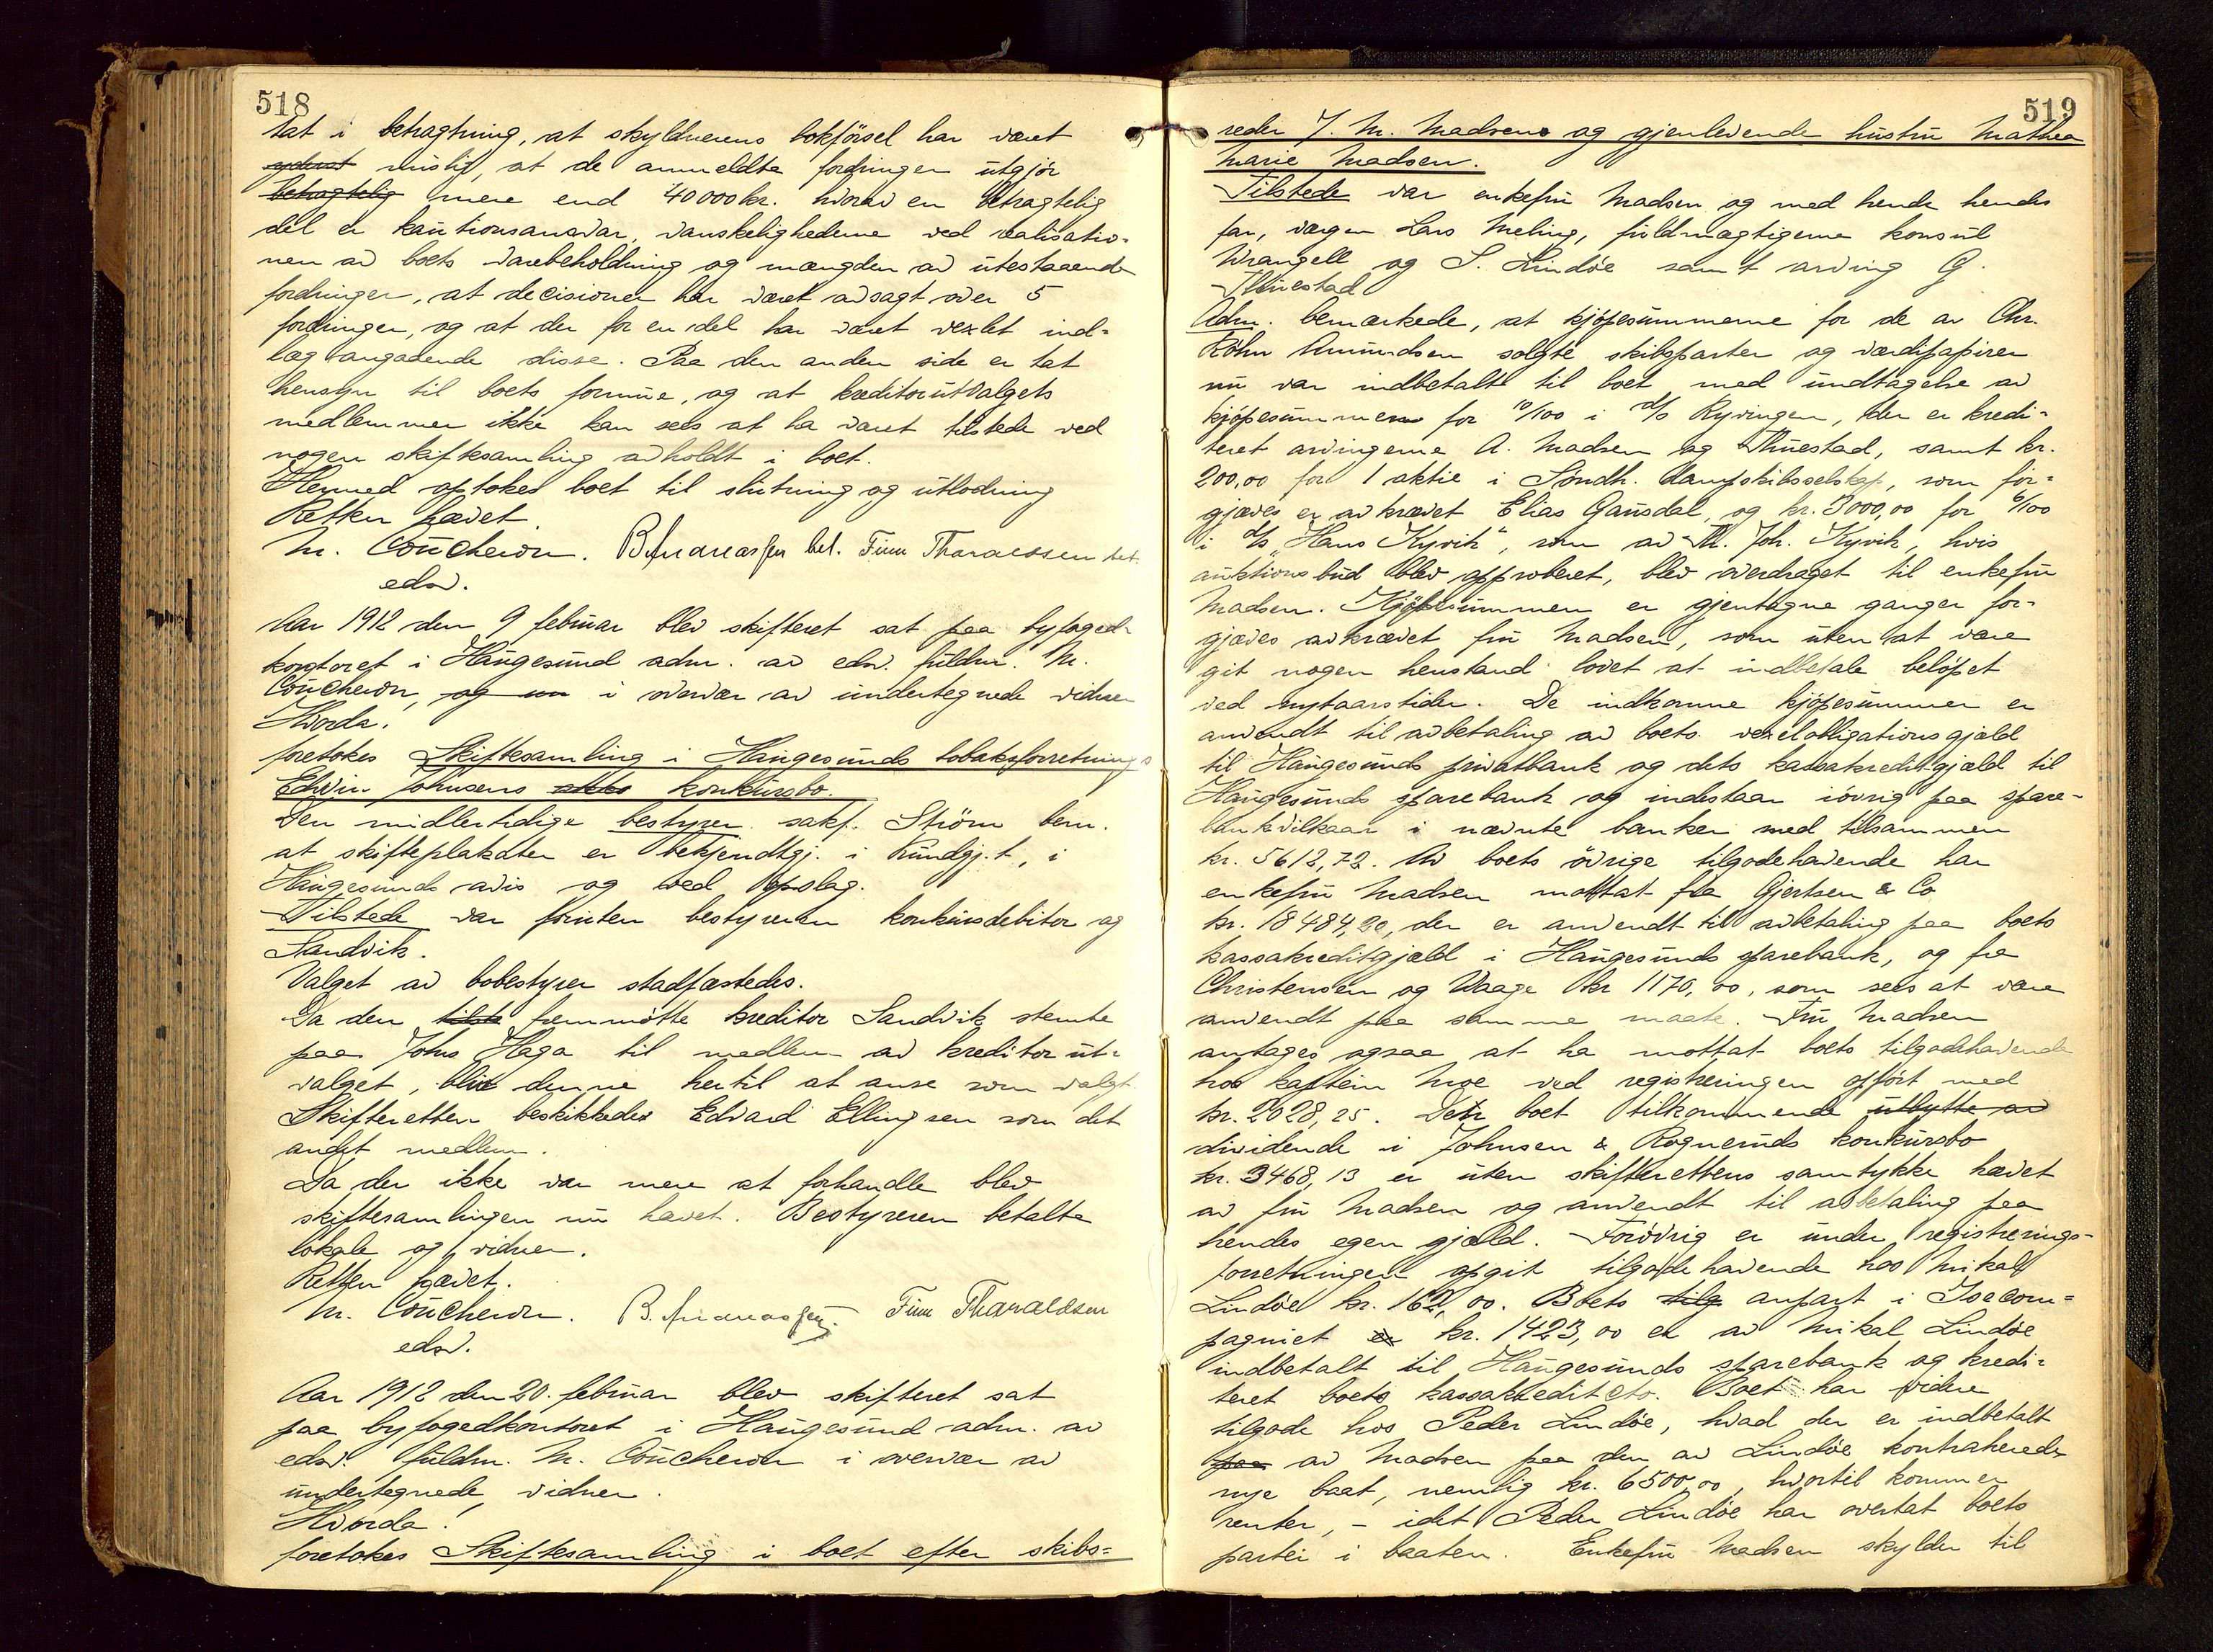 518
tat i betragtning, at skyldnerens bokførsel har været
yderst mislig, at de anmeldte fordringer utgjør
betragtelig mere end 40000 kr. hvorav en betragtelig
del er kautionsansvar, vanskelighederne ved realisatio-
nen av boets varebeholdning og mængden av utestaaende
fordringer, at decisioner har været avsagt over 5
fordringer, og at der for en del har været vexlet ind-
læg angaaende disse. Paa den anden side er tat
hensyn til boets formue, og at kreditorutvalgets
medlemmer ikke kan sees at ha været tilstede ved
nogen skiftesamling avholdt i boet.
Hermed optokes boet til slutning og utlodning
Retten hævet.
M. Coucheron. B. Andreassen bet. Finn Tharaldsen bet.
edsv.
Aar 1912 den 9 februar blev skifteret sat paa byfoged-
kontoret i Haugesund adm. av edsv. fuldm. M.
Coucheron, og i overvær av undertegnede vidner
Hvorda:
foretokes Skiftesamling i Haugesunds tobaksforretnings
Edvin Johnsens konkursbo.
Den midlertidige bestyrer sakf. Strøm bem.
at skifteplakaten er bekjendtgj. i Kundgj.t., i
Haugesunds avis og ved opslag.
Tilstede var foruten bestyreren konkursdebitor og
Sandvik.
Valget av bobestyrer stadfæstedes.
Da den fremmøtte kreditor Sandvik stemte
paa Johs Haga til medlem av kreditorut-
valget, blir denne hertil at anse som valgt.
Skifteretten beskikkedes Edvard Ellingsen som det
andet medlem.
Da der ikke var mere at forhandle blev
skiftesamlingen nu hævet. Bestyreren betalte
lokale og vidner.
Retten hævet.
M. Coucheron. B. Andreassen. Finn Tharaldsen
edsv.
Aar 1912 den 20. februar blev skifteret sat
paa byfogedkontoret i Haugesund adm. av
edsv. fuldm. M. Coucheron i overvær av
undertegnede vidner.
Hvorda!
foretokes Skiftesamling i boet efter skibs=
519
reder J. M. Madsen og gjenlevende hustru Mathea
Marie Madsen.
Tilstede var enkefru Madsen og med hende hendes
far, værgen Lars Meling, fuldmægtigerne konsul
Wrangell og S. Lindøe samt arving G.
Thuestad
Adm. bemærkede, at kjøpesummerne for de av Chr.
Røhn Amundsen solgte skibsparter og værdipapirer
nu var indbetalt til boet med undtagelse av
kjøpesummen for 10/100 i d/s Ryvingen, der er kredi-
teret arvingerne A. Madsen og Thuestad, samt kr.
200,00 for 1 aktie i Søndh. dampskibsselskap, som for-
gjæves er avkrævet Elias Gausdal, og kr. 3000,00 for 6/100
i d/s "Hans Kyvik", som av Th. Joh. Kyvik, hvis
auktionsbud blev approberet, blev overdraget til enkefru
Madsen. Kjøpesummen er gjentagne ganger for-
gjæves avkrævet fru Madsen, som uten at være
git nogen henstand lovet at indbetale beløpet
ved nytaarstider. De indkomne kjøpesummer er
anvendt til avbetaling av boets vexelobligationsgjæld
til Haugesunds privatbank og dets kassakreditgjæld til
Haugesunds sparebank og indestaar iøvrig paa spare-
bankvilkaar i nævnte banker med tilsammen
kr. 5612,72. Av boets øvrige tilgodehavende har
enkefru Madsen mottat fra Gjertsen & Co
kr. 18484,20, der er anvendt til avbetaling paa boets
kassakreditgjæld i Haugesunds sparebank, og fra
Christensen og Waage kr 1170,00, som sees at være
anvendt paa samme maate. Fru Madsen
antages ogsaa at ha mottat boets tilgodehavende
hos kaptein Moe ved registreringen opført med
kr. 2028,25. Den boet tilkommende utbytte av
dividende i Johnsen & Rogneruds konkursbo
kr. 3468,13 er uten skifterettens samtykke hævet
av fru Madsen og anvendt til avbetaling paa
hendes egen gjæld. Forøvrig er under registrerings-
forretningen opgit tilgodehavende hos Mikal
Lindøe kr. 162,00. Boets anpart i Isecom=
pagniet kr. 1423,00 er av Mikal Lindøe
indbetalt til Haugesunds sparebank og kredi-
teret boets kassakredit cto. Boet har videre
tilgode hos Peder Lindøe, hvad der er indbetalt
paa av Madsen paa den av Lindøe kontraherede
nye baat, nemlig kr. 6500,00, hvortil kommer
renter, – idet Peder Lindøe har overtat boets
parter i baaten. Enkefru Madsen skylder til